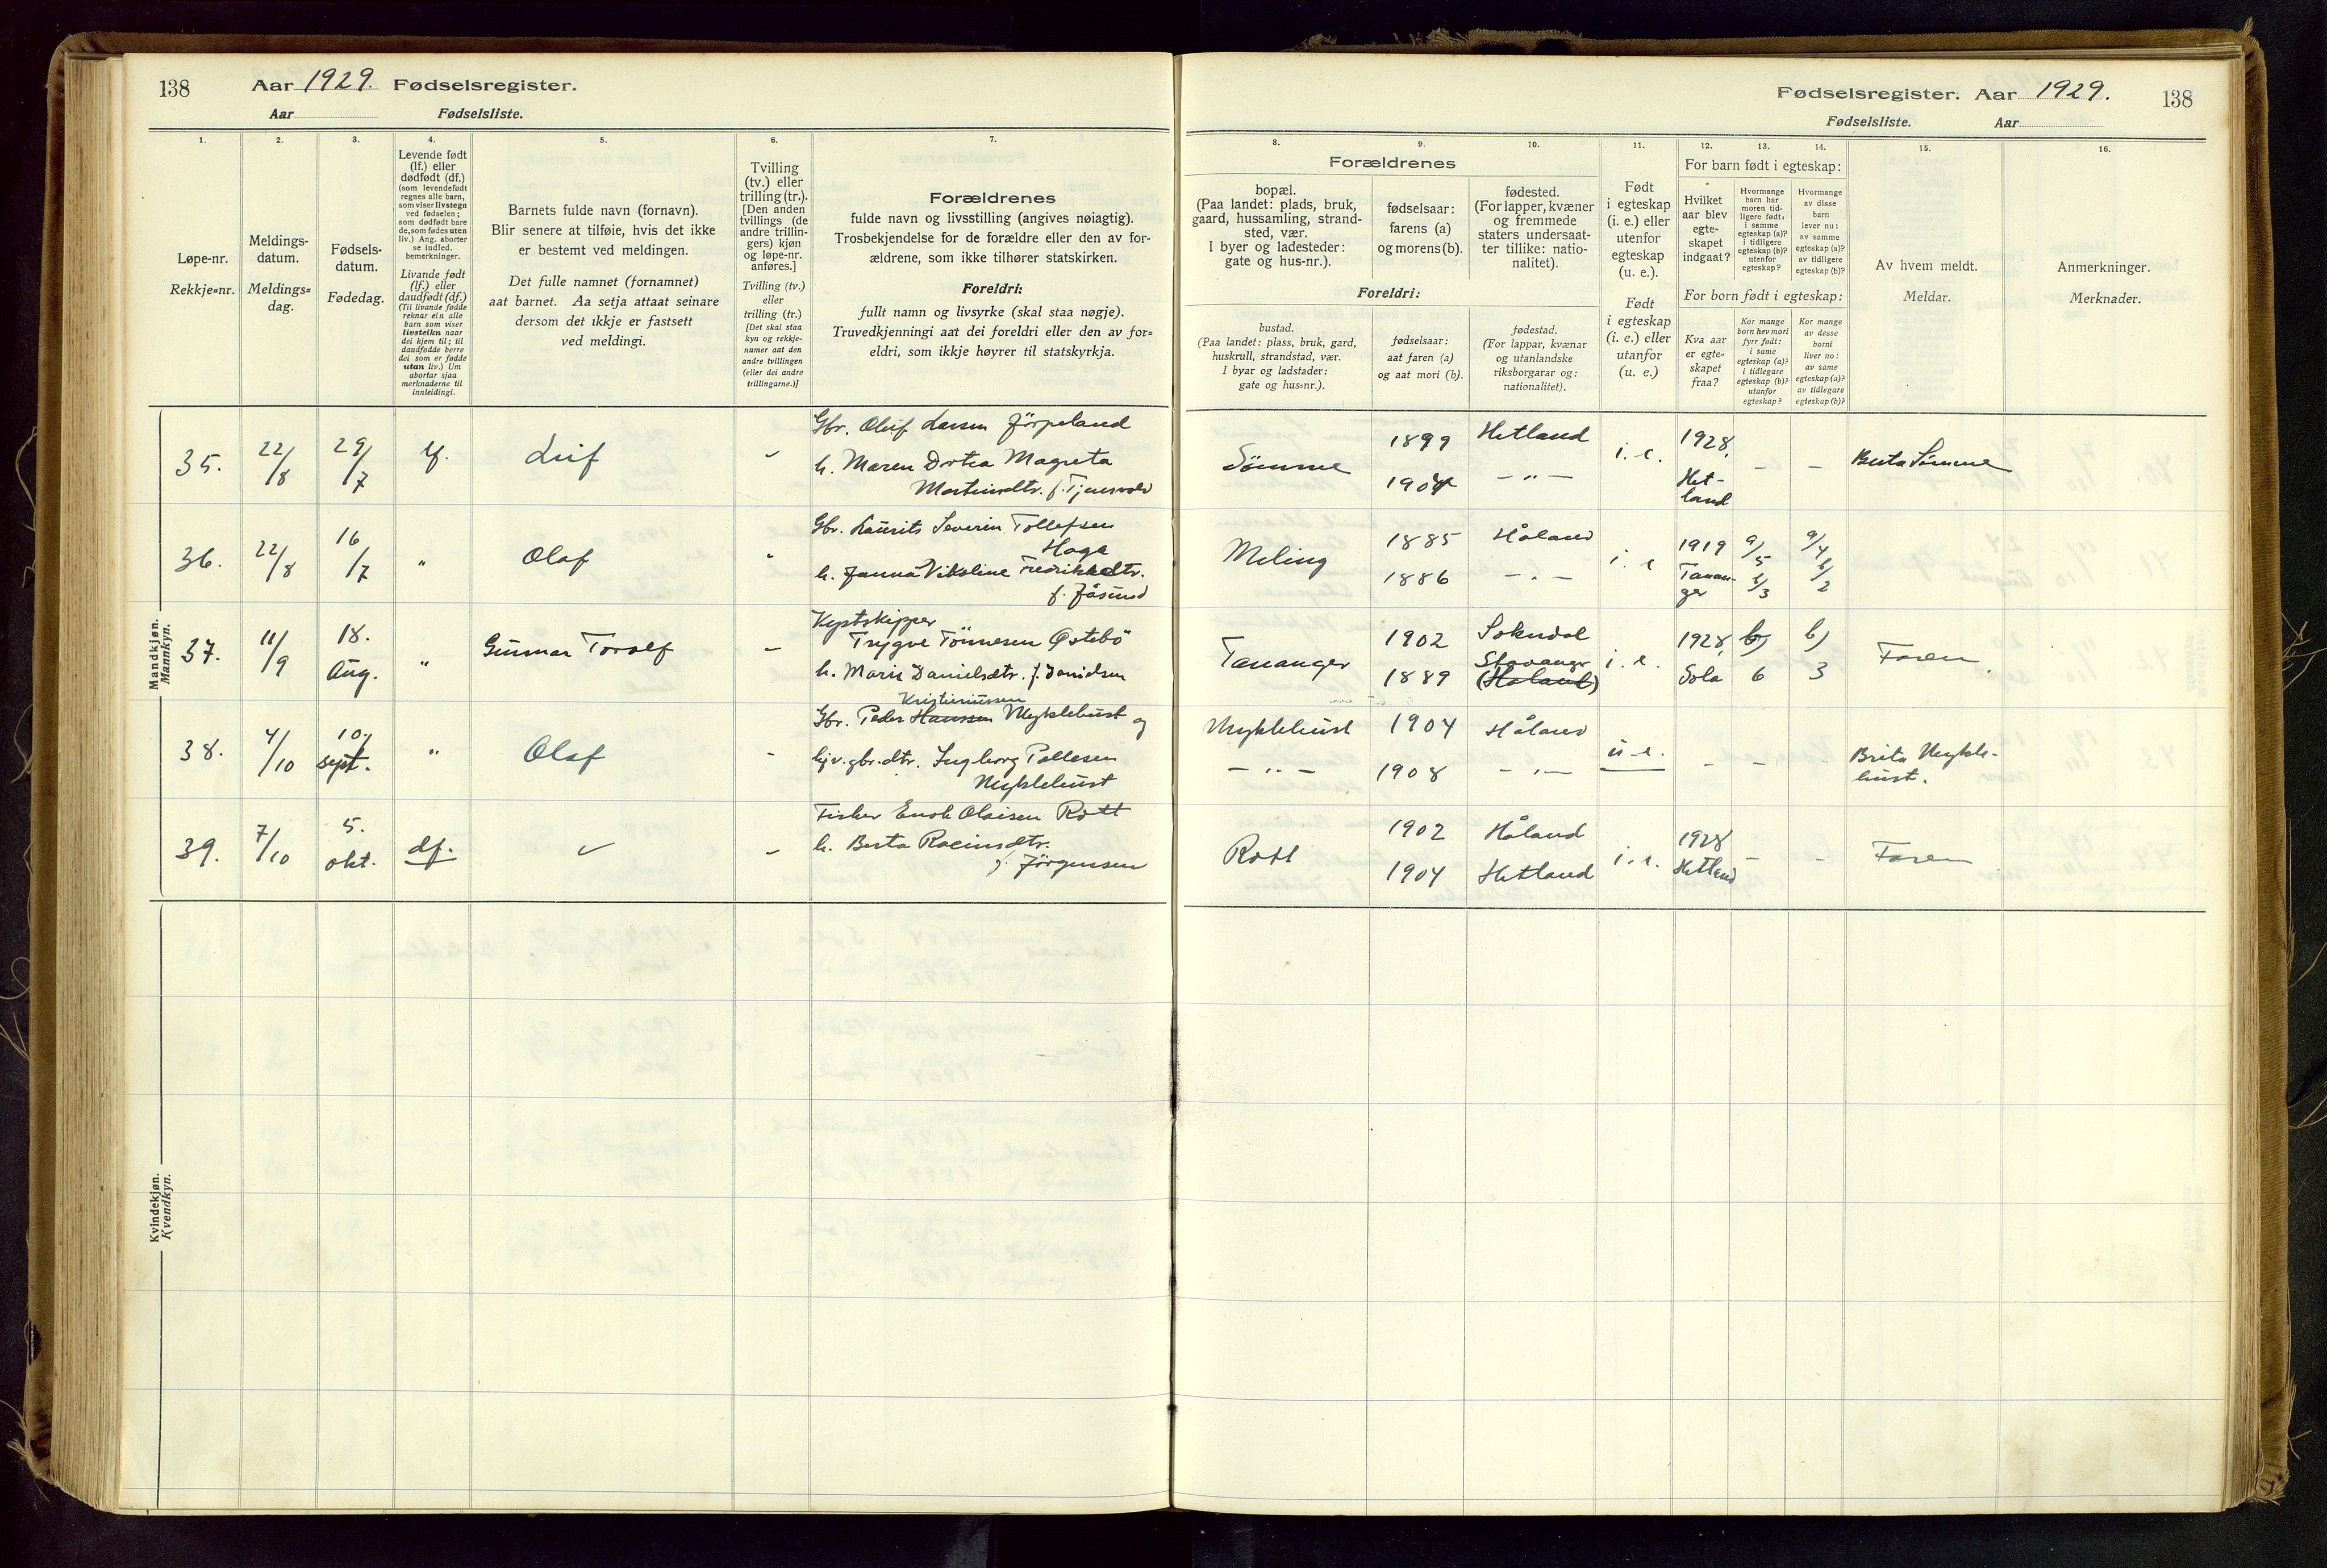 138
Aar 1929. Fødselsregister.
Aar Fødselsliste.
Fødselsregister. Aar 1929.
138
Fødselsliste. Aar
1.
Løpe-nr.
Rekkje-nr.
2.
Meldings-
datum.
Meldings-
dag.
3.
Fødsels-
datum.
Fødedag.
4.
Levende født
(lf.) eller
dødfødt (df.)
(som levendefødt
regnes alle barn,
som viser livstegn
ved fødselen;
som dødfødt bare
de, som fødes uten
liv.) Ang. aborter
se indled.
bemerkninger.
Livande født
(lf.) eller
daudfødt (df.)
(Til livande fødde
reknar ein alle
barn som viser
livsteikn naar
dei kjem til; til
daudfødde berre
dei som er fødde
utan liv.) Um
abortar sjaa
merknaderne til
innleidingi.
5.
Barnets fulde navn (fornavn).
Blir senere at tilføie, hvis det ikke
er bestemt ved meldingen.
Det fulle namnet (fornamnet)
aat barnet. Aa setja attaat seinare
dersom det ikkje er fastsett
ved meldingi.
6.
Tvilling
(tv.) eller
trilling (tr.).
[Den anden
tvillings (de
andre trillin-
gers) kjøn
og løpe-nr.
anføres.]
Tvilling (tv.)
eller
trilling (tr.)
[Det skal staa
kyn og rekkje-
numer aat den
andre tvillingen
(eller dei andre
trillingarne.)]
7.
Forældrenes
fulde navn og livsstilling (angives nøiagtig).
Trosbekjendelse for de forældre eller den av for-
ældrene, som ikke tilhører statskirken.
Foreldri:
fullt namn og livsyrke (skal staa nøgje).
Truvedkjenningi aat dei foreldri eller den av for-
eldri, som ikkje høyrer til statskyrkja.
8.
Forældrenes
bopæl.
(Paa landet: plads, bruk,
gaard, hussamling, strand-
sted, vær.
I byer og ladesteder:
gate og hus-nr.).
Foreldri:
bustad.
(Paa landet: plass, bruk, gard,
huskrull, strandstad, vær.
I byar og ladstader:
gate og hus-nr.).
9.
fødselsaar:
farens (a)
og morens (b).
fødselsaar:
aat faren (a)
og aat mori (b).
10.
fødested.
(For lapper, kvæner
og fremmede
staters undersaat-
ter tillike: natio-
nalitet).
fødestad.
(For lappar, kvænar
og utanlandske
riksborgarar og:
nationalitet).
11.
Født
i egteskap
(i. e.) eller
utenfor
egteskap
(u. e.).
Født
i egteskap
(i. e.) eller
utanfor
(u. e.)
12. 13. 14.
For barn født i egteskap:
Hvilket
aar blev
egte-
skapet
indgaat?
Hvormange
barn har
moren tid-
ligere født:
i samme
egteskap (a)?
i tidligere
egteskap (b)?
utenfor
egteskap?
Hvormange
av disse
barn
lever nu:
av samme
egteskap (a)?
av tidligere
egteskap (b)?
For born født i egteskap:
Kva aar
er egte-
skapet
fraa?
Kor mange
born hev mori
fyrr født:
i same
egteskap (a)?
i tidlegare
egteskap (b)?
utanfor
egteskap?
Kor mange
av desse
borni
liver no:
av same
egteskap (a)?
av tidlegare
egteskap (b)?
15.
Av hvem meldt.
Meldar.
16.
Anmerkninger.
Merknader.
Mandkjøn.
Mannkyn.
35. 22/8 29/7 lf. Leif
Gbr. Oluf Larsen Jörpeland
h. Maren Dotea Magreta
Martinsdtr. f. Tjensvold
Sömme 1899 Hetland i. e. 1928, - - Berta Sömme
1904 - " - Het-
land
36. 22/8 16/7 " Olaf "
Gbr. Laurits Severin Tollefsen
Haga
h. Janna Vikoline Fredrikkedtr.
f. Jåsund
Meling 1885 Håland i. e 1919 a/5 a/4
1886 - " - Tanan-
ger b/3 b/2
37. 11/9 18. Aug. " Gunnar Torolf -
Kystskipper
Trygve Tönnesen Östebö
h. Marie Danielsdtr. f. Danielsen
Tananger 1902 Sokndal i. e. 1928, b) b) Faren.
1889 Stavanger (Håland) Sola 6 3
38. 4/10 10. sept. " Olaf -
Kristiernissen
Gbr. Peder Hanssen Myklebust og
hjv. gbr.dtr. Ingborg Pallesen
Myklebust
Myklebust 1904 Håland u. e. - - - Brita Mykle-
bust.
- " - 1908 - " -
39. 7/10 5. okt. df. -
Fisker Enok Olaisen Rott
h. Berta Racinsdtr.
f. Jörgensen
Rott 1902 Håland i. e. 1928 - - Faren
1904 Hetland Hetland
Kvindekjøn.
Kvendkyn.